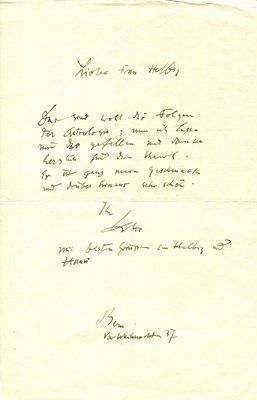 Liebe Frau Helbig
Das sind wohl die Folgen
der Astrologie; nun ich lasse
mir das gefallen und danke
herzlich für den
Er ist ganz mein Geschmack
und darüber hinaus sehr schön.
Ihr
mit besten Grüssen an Helbig und
Bern
Vor Weihnachten 37